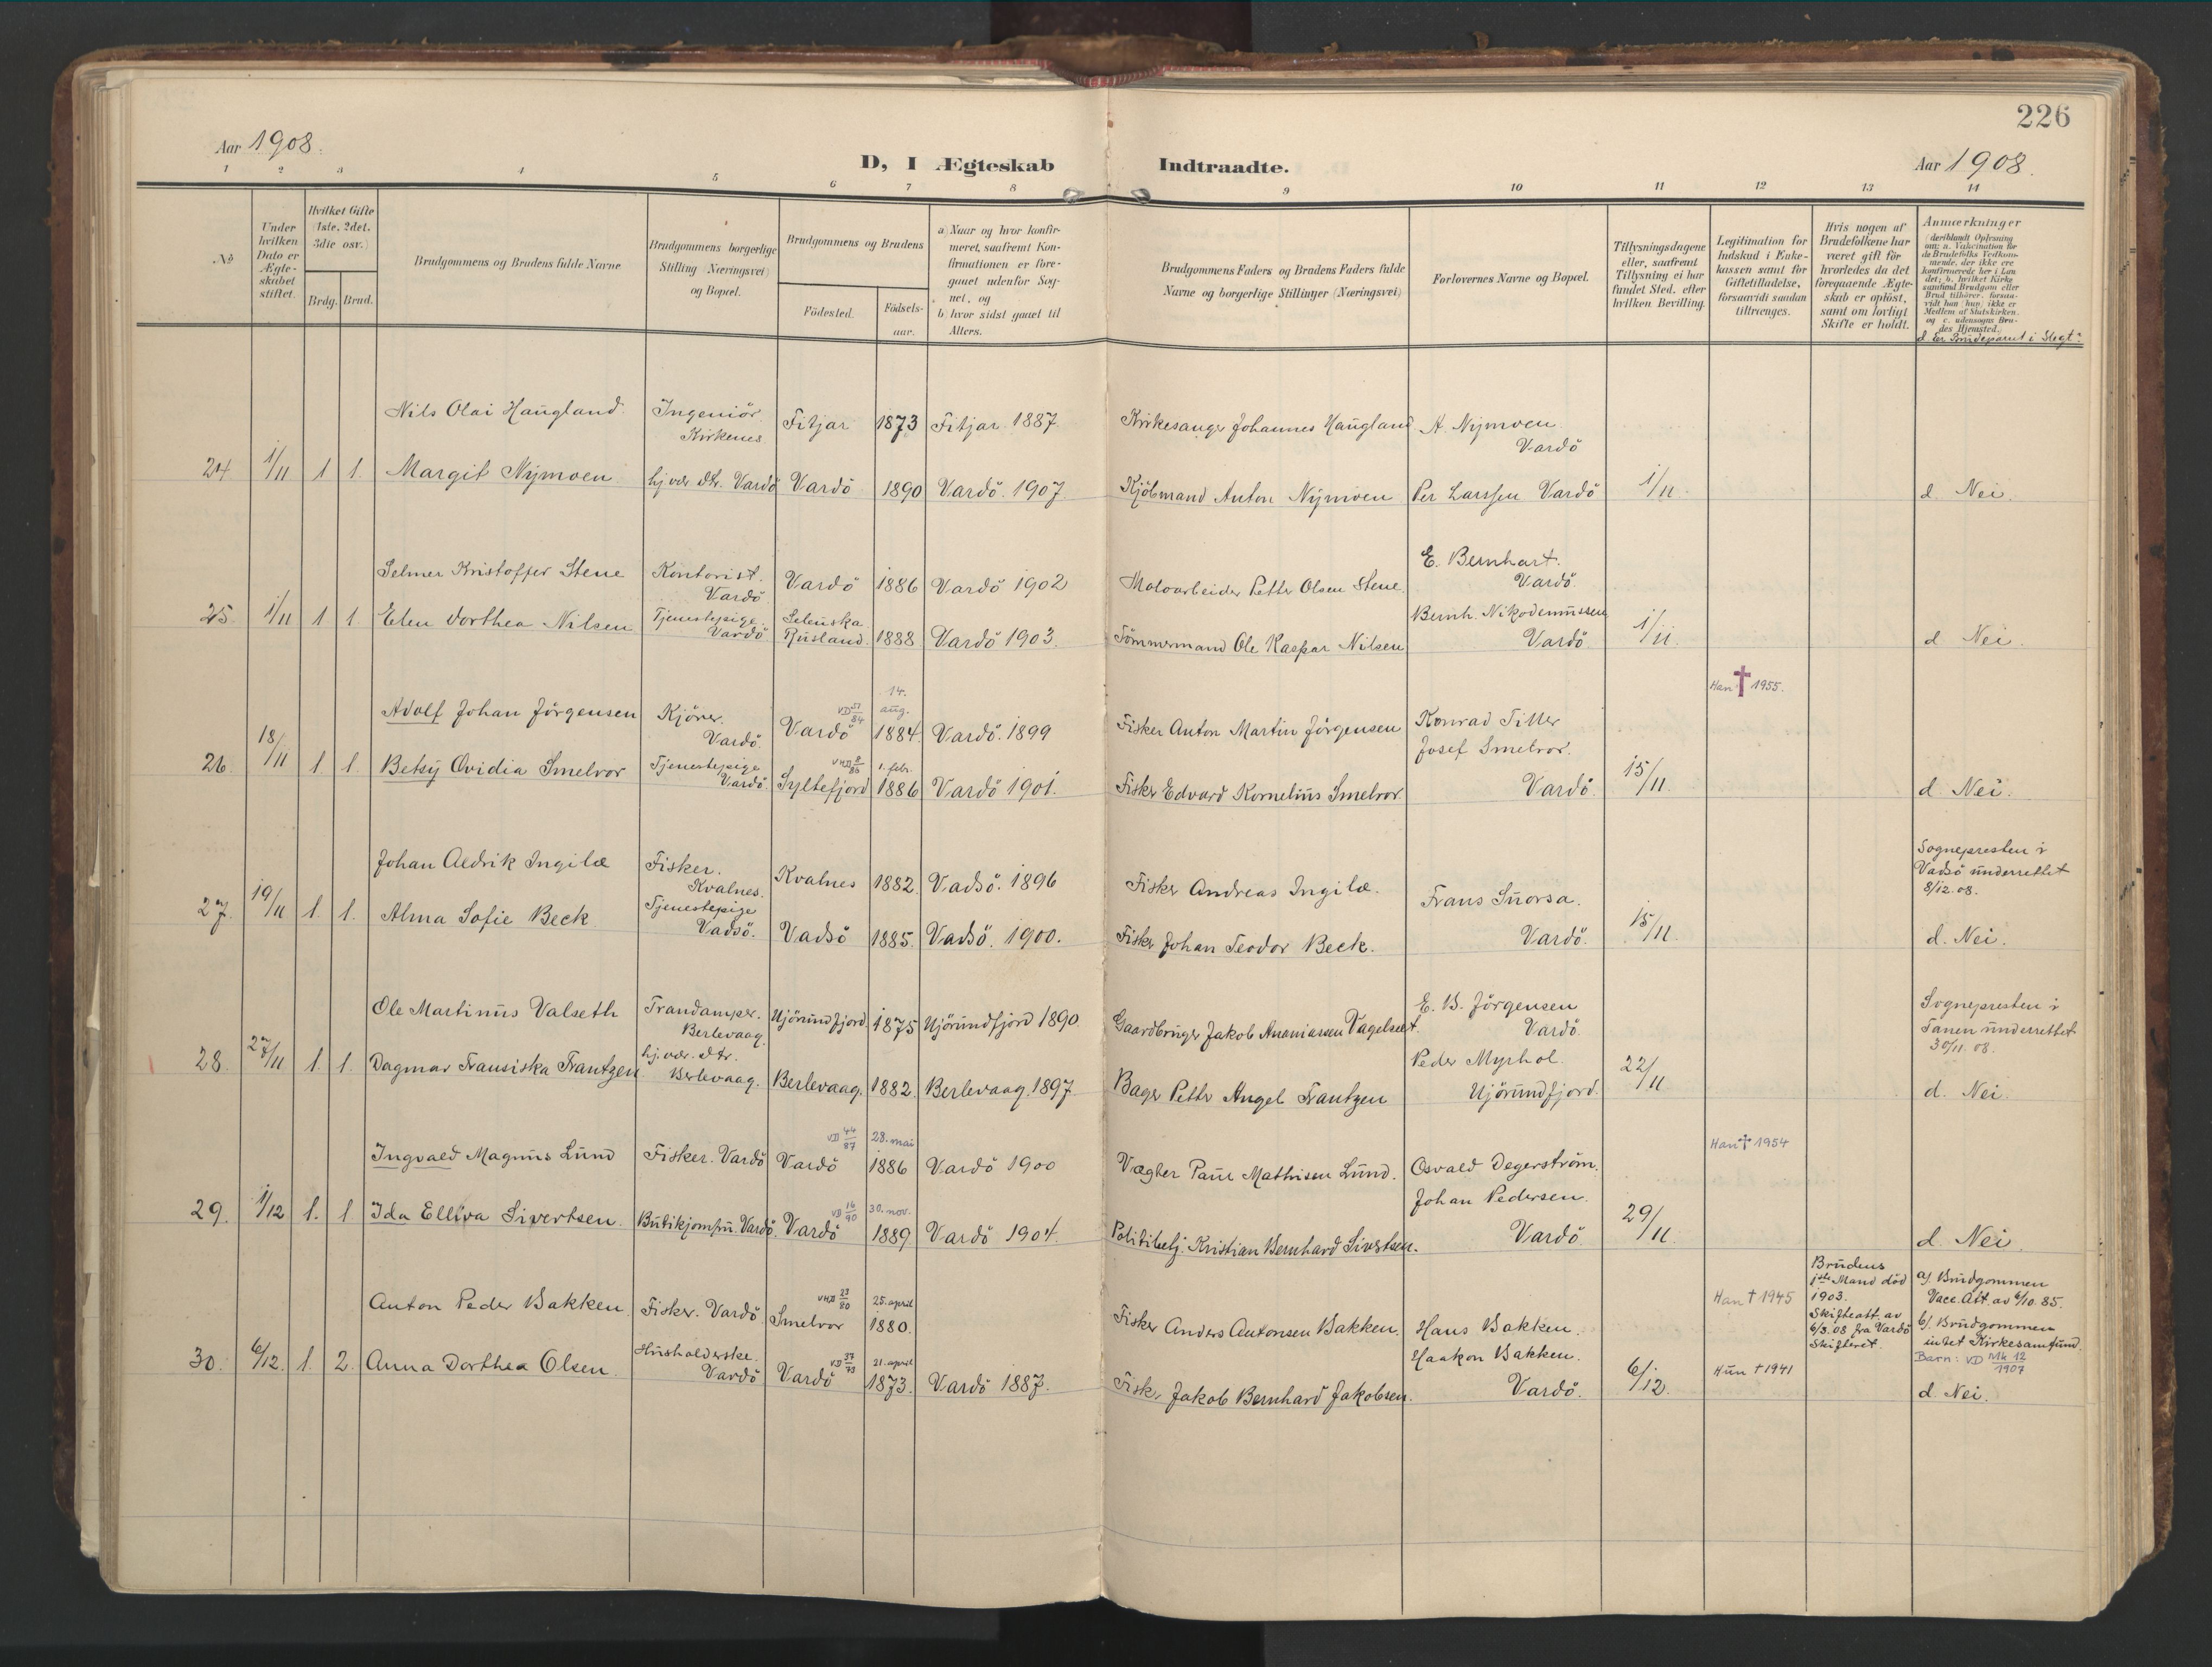 226
Aar 1908.
D, I Ægteskab Indtraadte.
Aar 1908.
1 2 3 4 5 6 7 8 9 10 11 12 13 14
No
Under
hvilken
Dato er
Ægte-
skabet
stiftet.
Hvilket Gifte
(1ste, 2det,
3die osv.)
Brdg. Brud.
Brudgommens og Brudens fulde Navne
Brudgommens borgerlige
Stilling (Næringsvei)
og Bopæl.
Brudgommens og Brudens
Fødested.
Fødsels-
aar.
a) Naar og hvor konfir-
meret, saafremt Kon-
firmationen er fore-
gaaet udenfor Sog-
net, og
b. hvor sidst gaaet til
Alters.
Brudgommens Faders og Brudens Faders fulde
Navne og borgerlige Stillinger (Næringsvei)
Forlovernes Navne og Bopæl.
Tillysningsdagene
eller, saafremt
Tillysning ei har
fundet Sted, efter
hvilken Bevilling.
Legitimation for
Indskud i Enke-
kassen samt for
Giftetilladelse,
forsaavidt saadan
tiltrænges.
Hvis nogen af
Brudefolkene har
været gift før
hvorledes da det
foregaaende Ægte-
skab er opløst,
samt om lovligt
Skifte er holdt.
Anmærkninger
(deriblandt Oplysning
om: a. Vakcination for
de Brudefolks Vedkom-
mende, der ikke ere
konfirmerede her i Lan
det; b. hvilket Kirke
samfund Brudgom eller
Brud tilhører, forsaa-
vidt han (hun) ikke er
Medlem af Statskirken.
og c. udensogns Bru-
des Hjemsted.
d Er Brudeparret i Slegt?
Nils Olai Haugland. Ingeniör Kirkenes Fitjar 1873 Fitjar 1887. Kirkesanger Johannes Haugland A. Nymoen Vardö
24. 1/11 1 1. Margit Nymoen hj.vær. dtr. Vardö Vardö 1890 Vardö. 1907. Kjöbmand Anton Nymoen Per Larssen Vardö 1/11. d. Nei.
Selmer Kristoffer Stene Kontorist. Vardö Vardö 1886 Vardö 1902 Moloarbeider Petter Olsen Stene. E. Bernhart. Vardö.
25. 1/11 1 1. Elen Dorthea Nilsen Tjenestepige. Vardö Rusland 1888 Vardö 1903. Tömmermand Ole Kaspar Nilsen Bernh. Nikodemussen Vardö 1/11. d Nei.
Han † 1955.
14. aug.
Adolf Johan Jörgensen Kjörer. Vardö. Vardö VD 51/84 1884. Vardö. 1899 Fisker Anton Martin Jörgensen Konrad Tiller
26. 18/11 1. 1. Betsy Ovidia Smelror Tjenestepige Vardö. Syltefjord 1. febr. 1886 Vardö 1901. Fisker Edvard Kornelius Smelror Josef Smelror. Vardö. 15/11. d. Nei.
Johan Aldrik Ingilæ Fisker. Kvalnes. Kvalnes 1882. Vadsö. 1896 Fisker Andreas Ingilæ. Frans Suorsa. Vardö.
Sognepresten i
Vadsö underrettet
8/12. 08.
27. 19/11 1. 1. Alma Sofie Beck Tjenestepige Vadsö. Vadsö 1885. Vadsö. 1900. Fisker Johan Teodor Beck. 15/11. d. Nei.
Ole Martinus Valseth Trandamper. Berlevaag. Hjörundfjord 1875 Hjörundfjord 1890. Gaardbruger Jakob Ananiassen Vagelseet. E. B. Jörgensen Vardö.
Sognepresten i
Tanen underrettet
30/11. 08.
28. 27/11 1. 1. Dagmar Fransiska Frantzen hj. vær. dtr. Berlevaag. Berlevaag. 1882. Berlevaag. 1897 Bager Petter Angel Frantzen Peder Myrhol. Hjörundfjord. 22/11 d. Nei.
Han † 1954
Ingvald Magnus Lund Fisker. Vardö Vardö VD 44/87 28. mai 1886 Vardö 1900 Vægter Paul Mathisen Lund. Osvald Degerström.
29. 1/12 1. 1 Ida Elliva Sivertsen. Butikjomfru. Vardö. Vardö VD 16/90 30. nov. 1889 Vardö 1904. Politibetj. Kristian Bernhard Sivertsen. Johan Pedersen. Vardö 29/11. d. Nei.
Anton Peder Bakken. Fisker. Vardö. Smelror VHD 23/80 25. april 1880. Fisker Anders Antonsen Bakken. Hans Bakken. Han † 1945
Brudens
1ste Mand död
1903.
Skifteatt. av
6/3. 08 fra Vardö
Skifteret.
a/. Brudgommen
Vacc. Att. av 6/10. 85.
b/. Brudgommen
intet Kirkesamfund.
Barn: VD Mk 12 1907
30. 6/12. 1. 2. Anna Dorthea Olsen. Husholderske. Vardö Vardö VD 37/73 21. april 1873. Vardö 1887. Fisker Jakob Bernhard Jakobsen. Haakon Bakken. Vardö. 6/12. Hun † 1941 d. Nei.